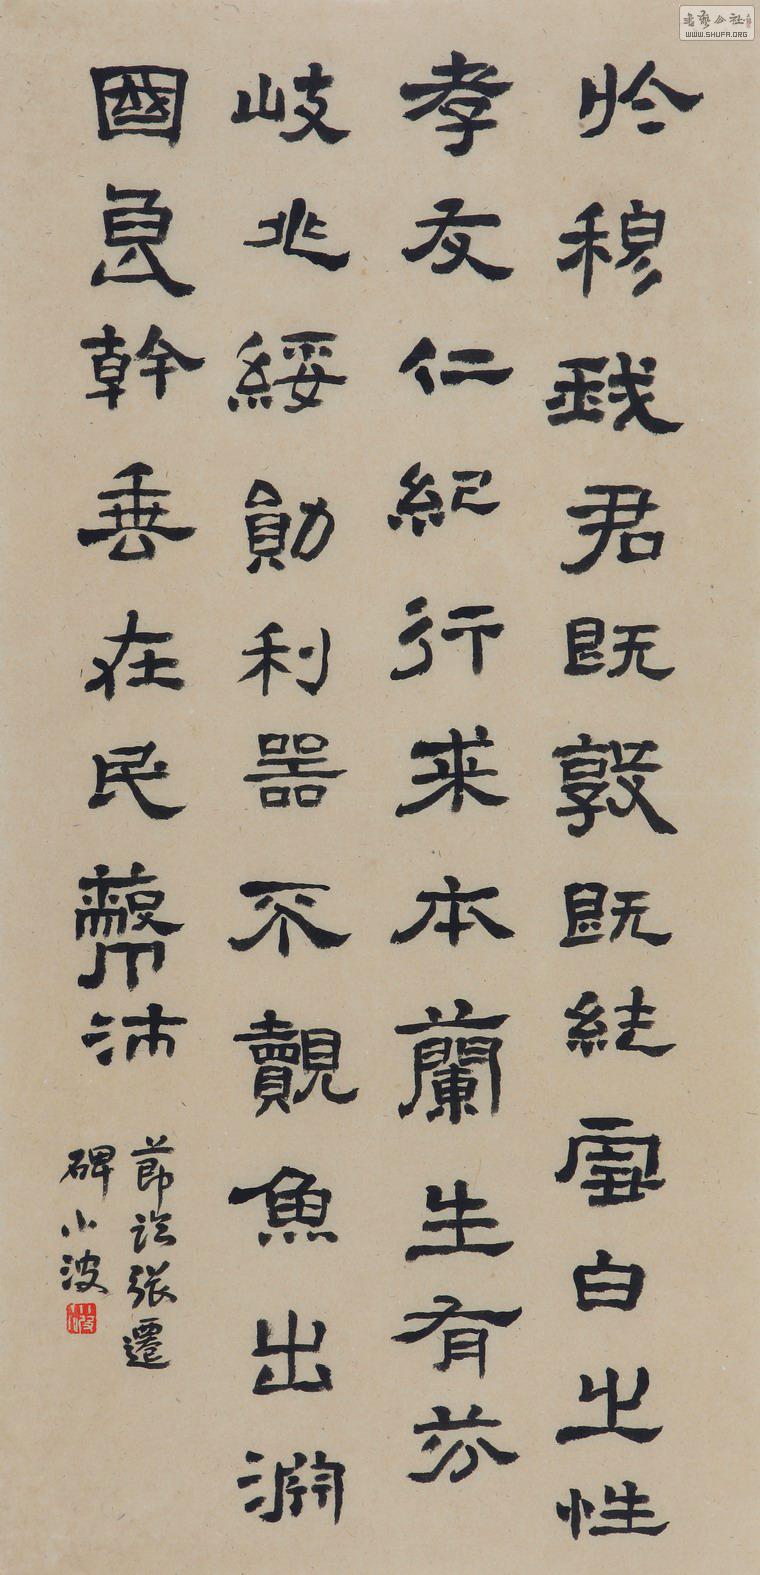 於穆我君既敦既純雪白之性
孝友仁紀行来本蘭生有芬
岐兆綏勛利器不覿魚出淵
國良幹垂在民蔽沛
節臨張遷
碑小波
書藝公社
WWW.SHUFA.ORG